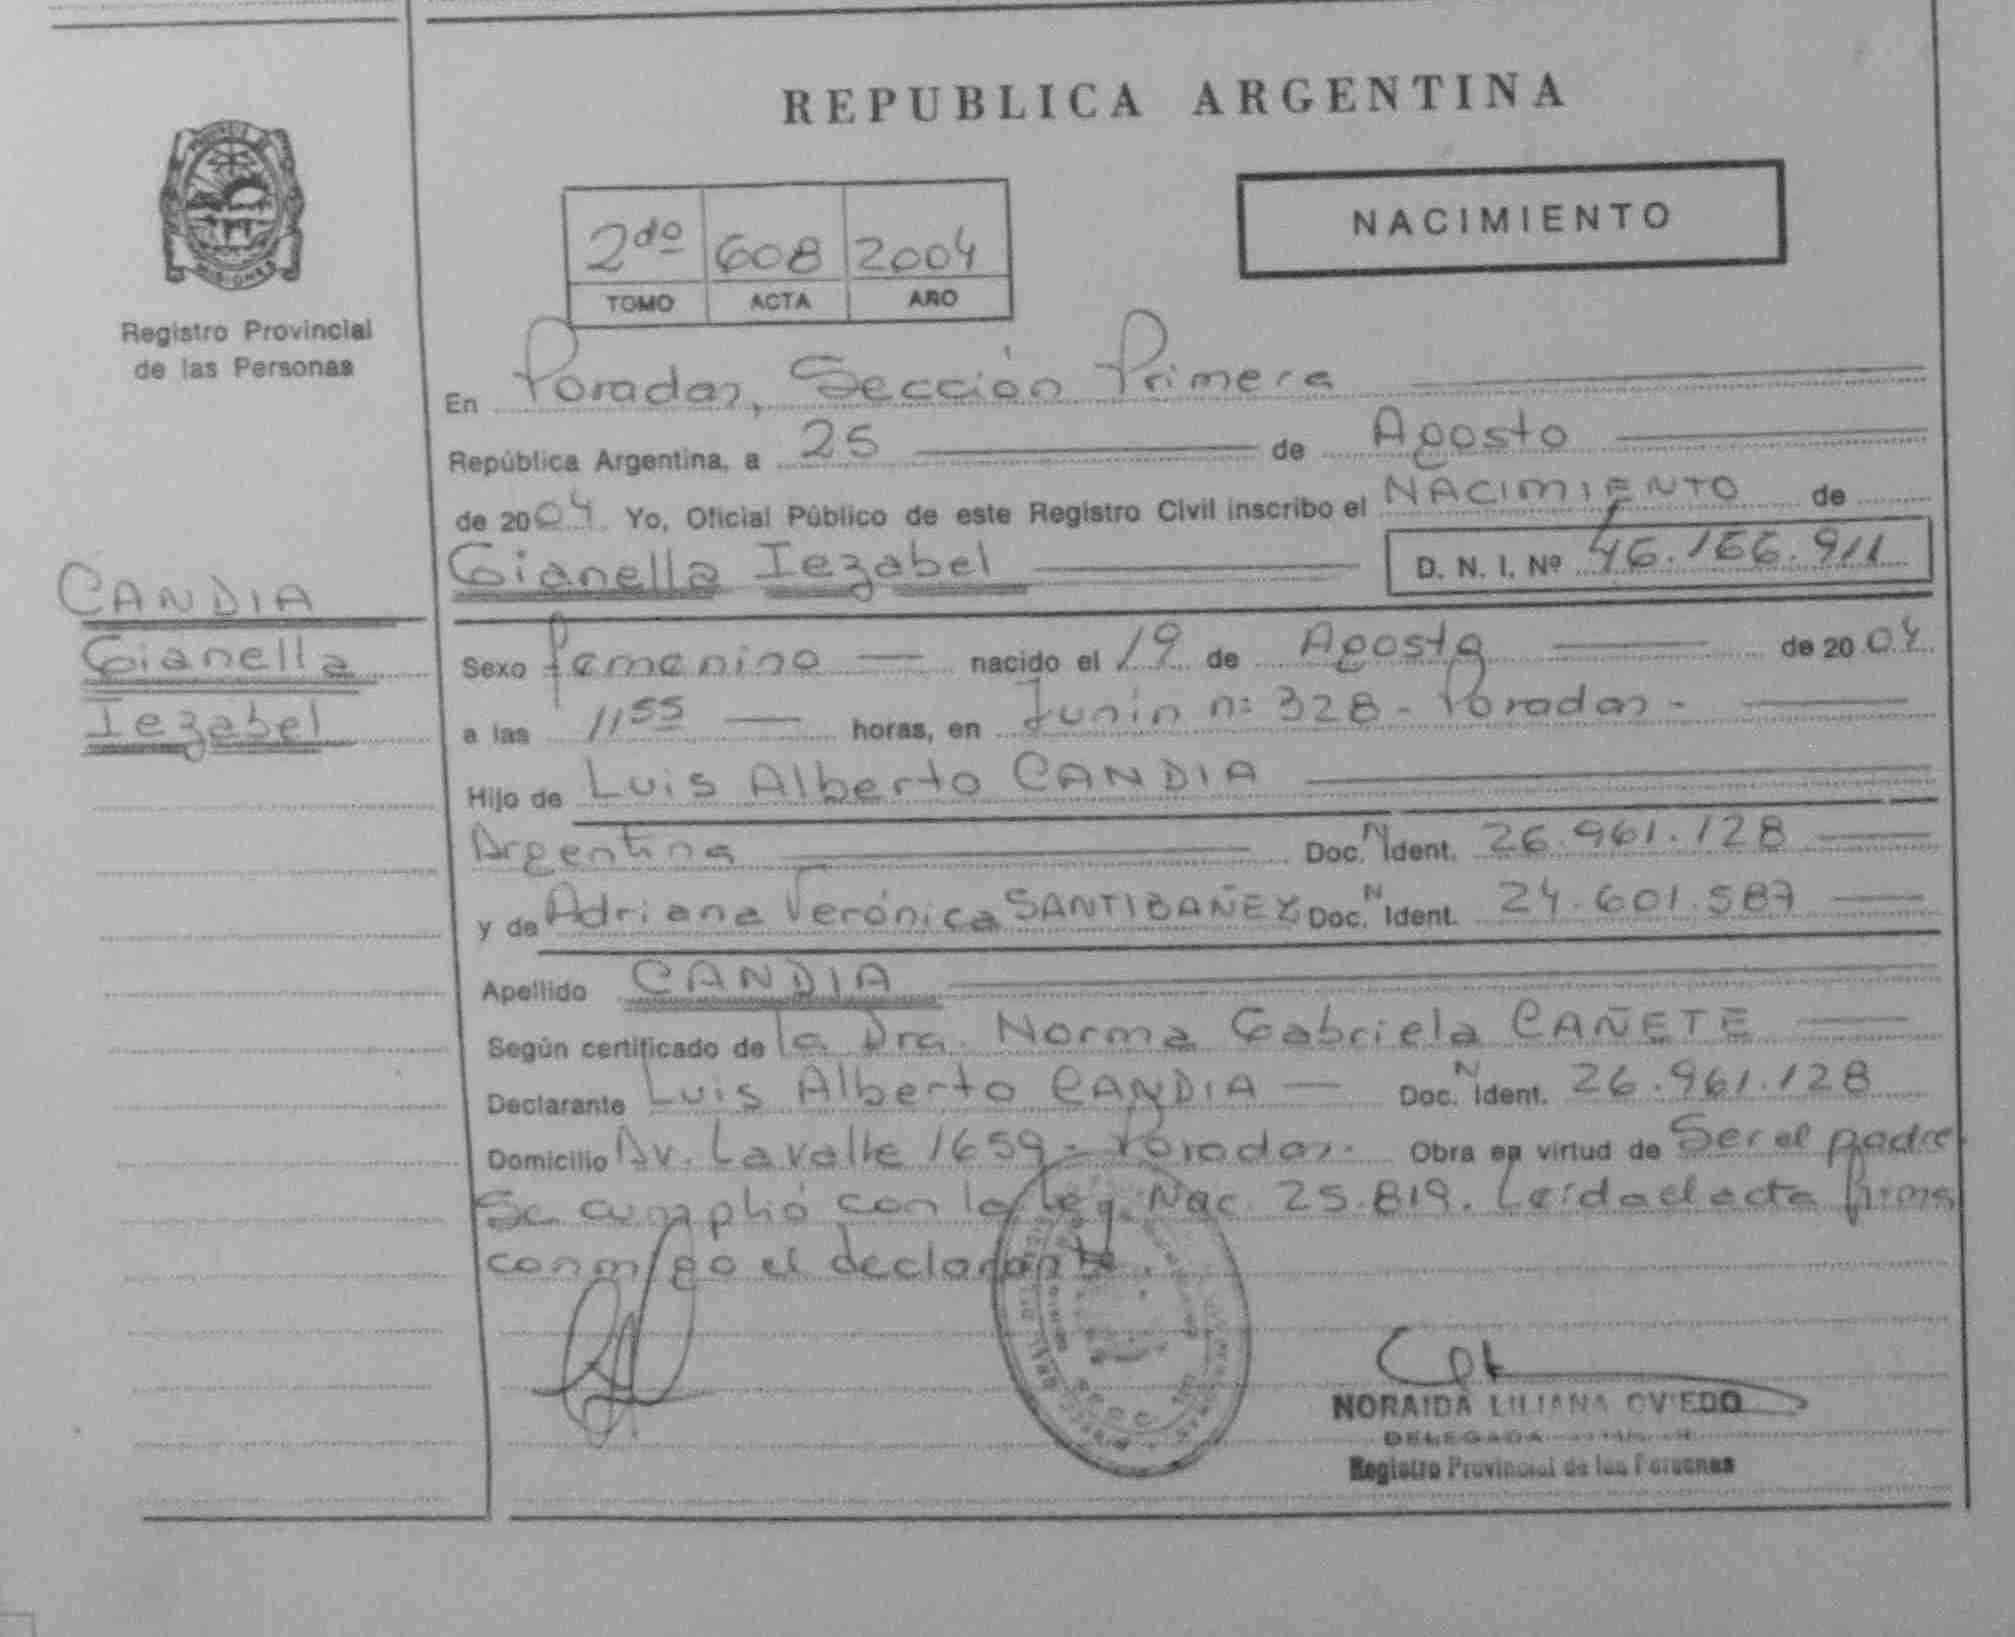 REPUBLICA ARGENTINA
NACIMIENTO
2do 608 2004
TOMO ACTA AÑO
MISIONES
Registro Provincial
de las Personas
En Posadas, Sección Primera
República Argentina, a 25 de Agosto
de 2004 Yo, Oficial Público de este Registro Civil inscribo el NACIMIENTO de
Gianella Iezabel D. N. I. Nº 46.166.911
CANDIA
Gianella
Iezabel
Sexo femenino nacido el 19 de Agosto de 2004
a las 11 55 horas, en Junín nº 328 - Posadas -
Hijo de Luis Alberto CANDIA
Argentina Doc. N Ident. 26.961.128
y de Adriana Verónica SANTIBAÑEZ Doc. N Ident. 24.601.587
Apellido CANDIA
Según certificado de la Dra. Norma Gabriela CAÑETE
Declarante Luis Alberto CANDIA Doc. N Ident. 26.961.128
Domicilio Av. Lavalle 1659 - Posadas. Obra en virtud de Ser el padre.
Se cumplió con la Ley Nac. 25.819. Leída el acta firma
conmigo el declarante.
NORAIDA LILIANA OVIEDO
DELEGADA
Registro Provincial de las Personas